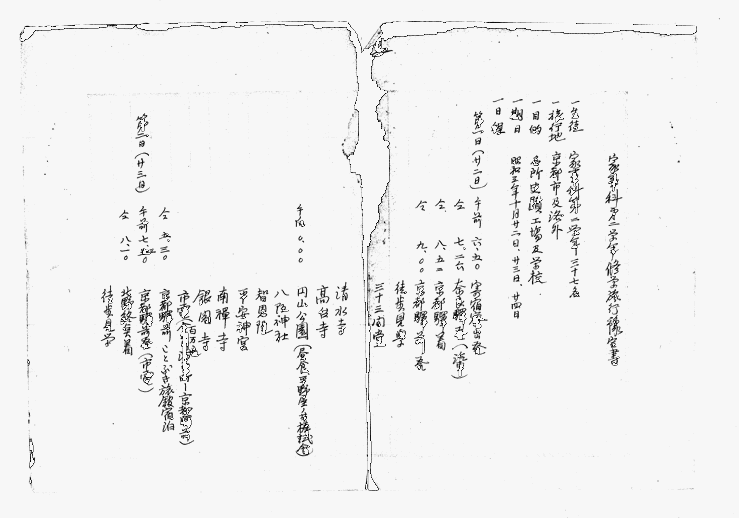 家事科第二学年修学旅行豫定書
一生徒 家事科第二学年 三十七名
一旅行地 京都市及洛外
一目的 名所史蹟工場及学校
一期日 昭和三年十月廿二日、廿三日、廿四日
一日程
第一日(廿二日) 午前 六.五〇 寄宿舎出発
仝 七.二六 奈良驛発(汽車)
仝 八.五二 京都驛着
仝 九.〇〇 京都驛前発
徒歩見学
三十三間堂
清水寺
高台寺
午后 〇.〇〇 円山公園(昼食
八阪神社
智恩院
平安神宮
南禅寺
銀閣寺
市電 百万遍 京都驛前)
京都驛前 ことぶき旅館宿泊
第二日(廿三日) 午前 七. 京都驛前発(市電)
仝 八.一〇 北野終点着
徒歩見学
仝 五.三〇